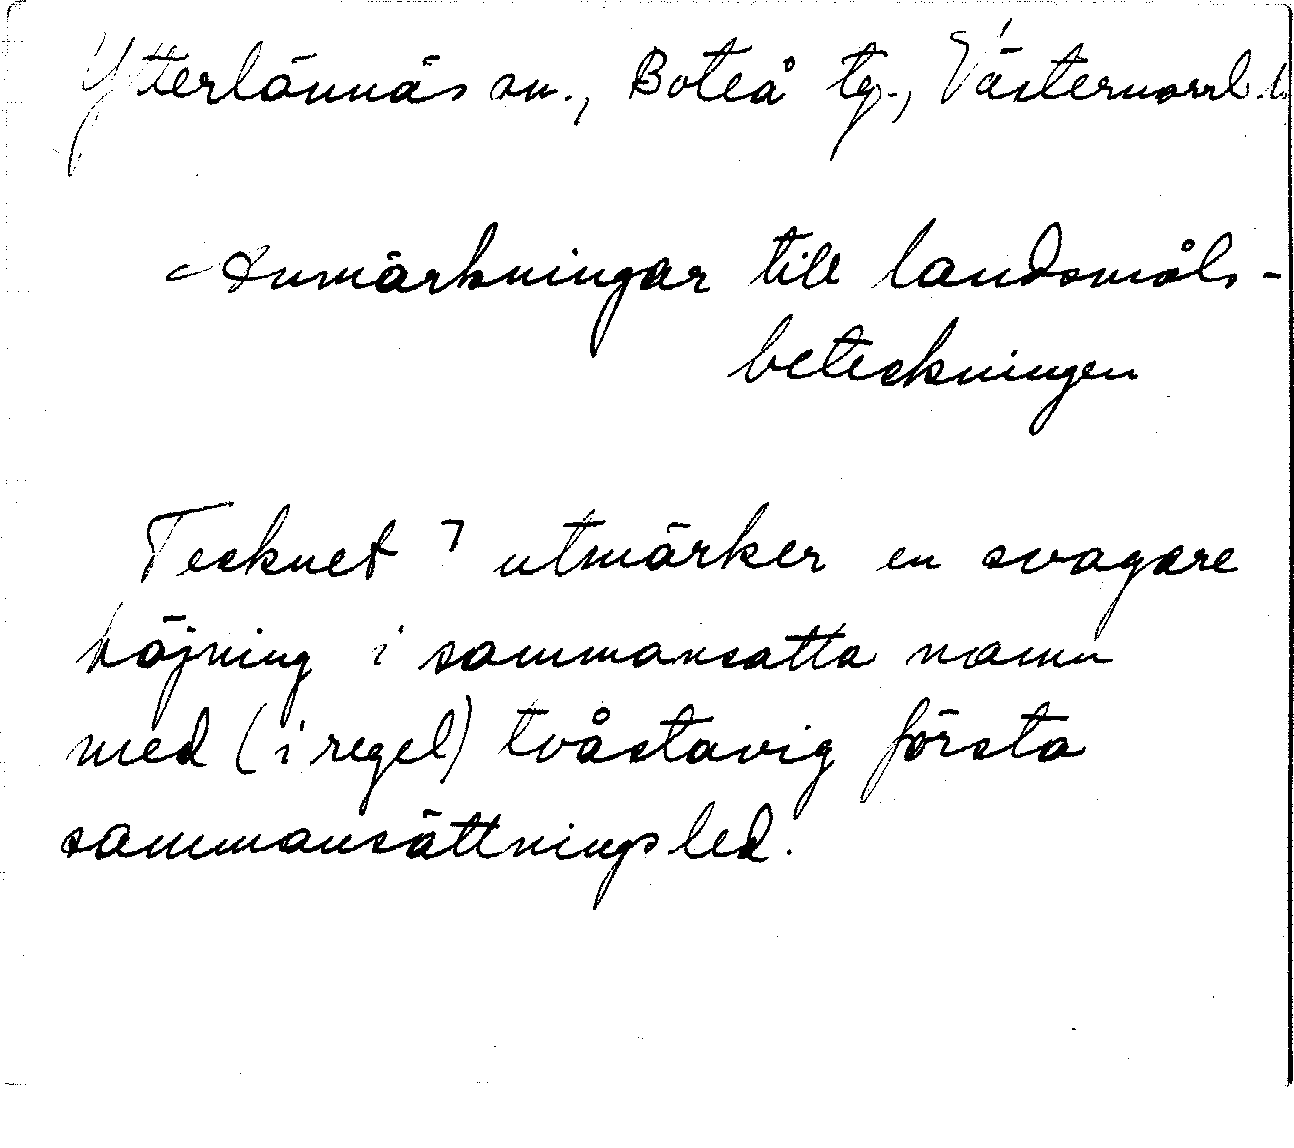 Ytterlännäs sn., Boteå tg., Västernorrl. l.
Anmärkningar till landsmåls-
beteckningen
Tecknet ⁊ utmärker en svagare
höjning i sammansatta namn
med (i regel) tvåstavig första
sammansättningsled.